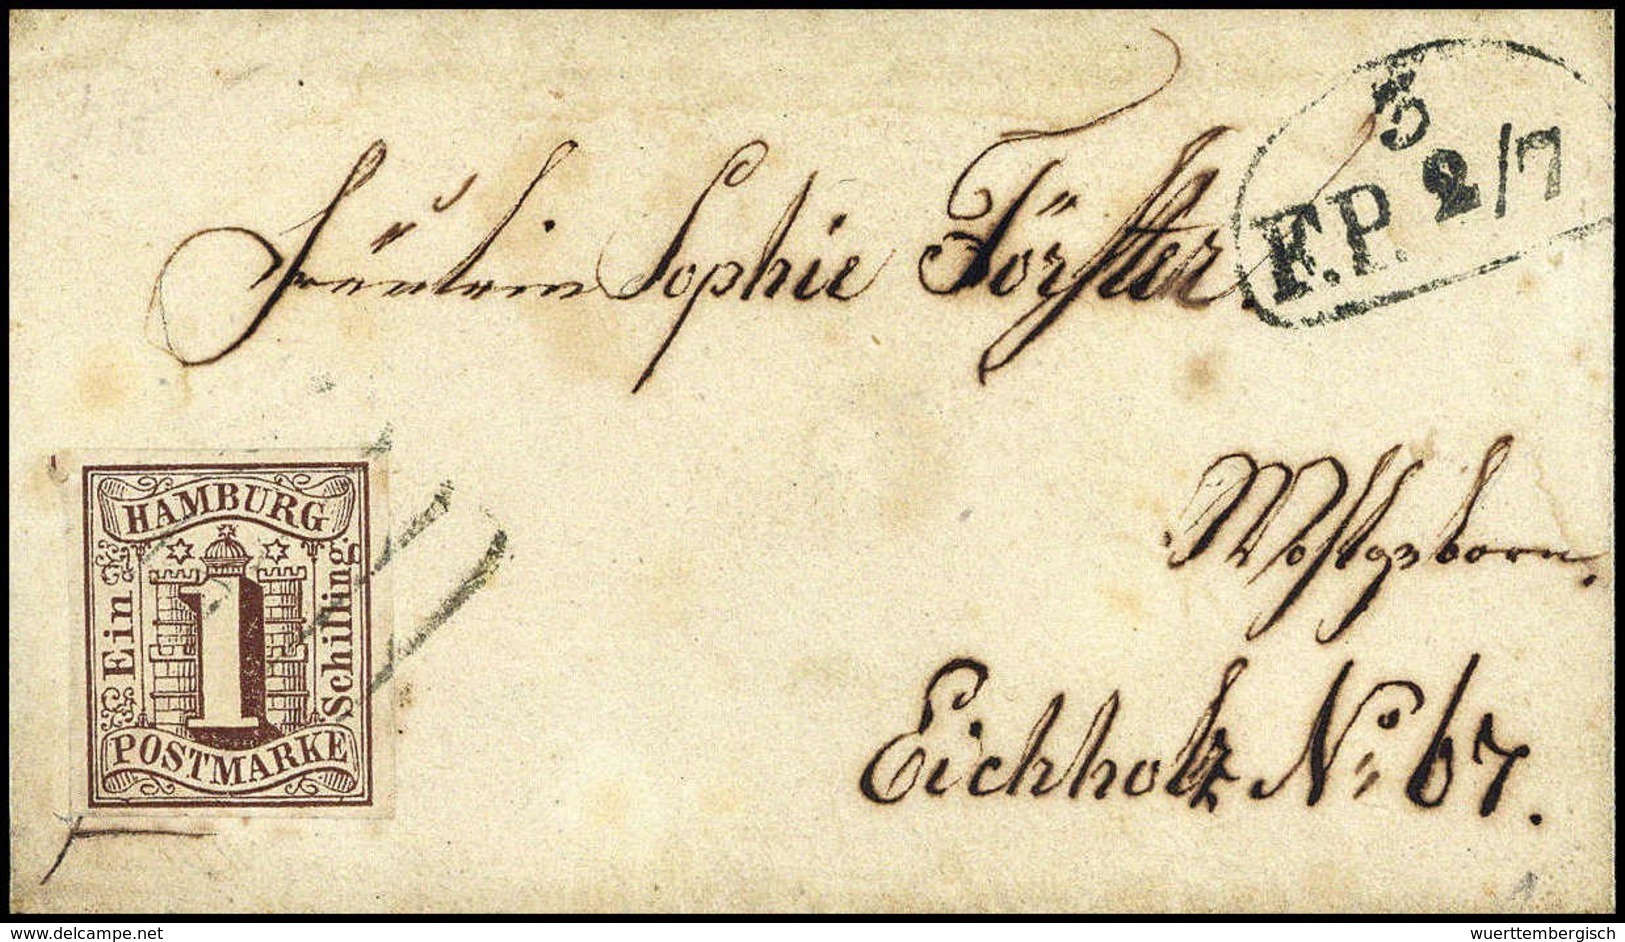 3
F.P. 2/7
Fräulein Sophie Förster.
Wohlgeborn.
Eichholz No 67.
HAMBURG
Ein
1
Schilling.
POSTMARKE
delcampe.net
wuerttembergisch